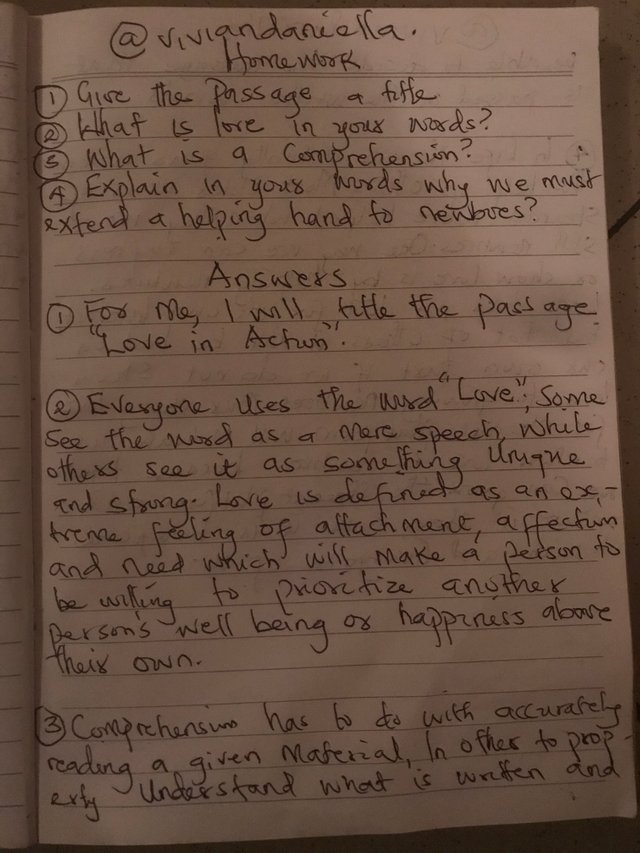 @viviandaniella.
Homework
① Give the Passage a title
② What is love in your words?
③ What is a Comprehension?
④ Explain in your words why we must
extend a helping hand to newboves?
Answers
① For me, I will title the passage
"Love in Action".
② Everyone uses the word "Love"; Some
See the word as a mere speech, while
others see it as something Unique
and strong. Love is defined as an ex-
treme feeling of attachment, affection
and need which will make a person to
be willing to prioritize another
person's well being or happiness above
their own.
③ Comprehension has to do with accurately
reading a given Material, In other to prop-
erly Understand what is written and